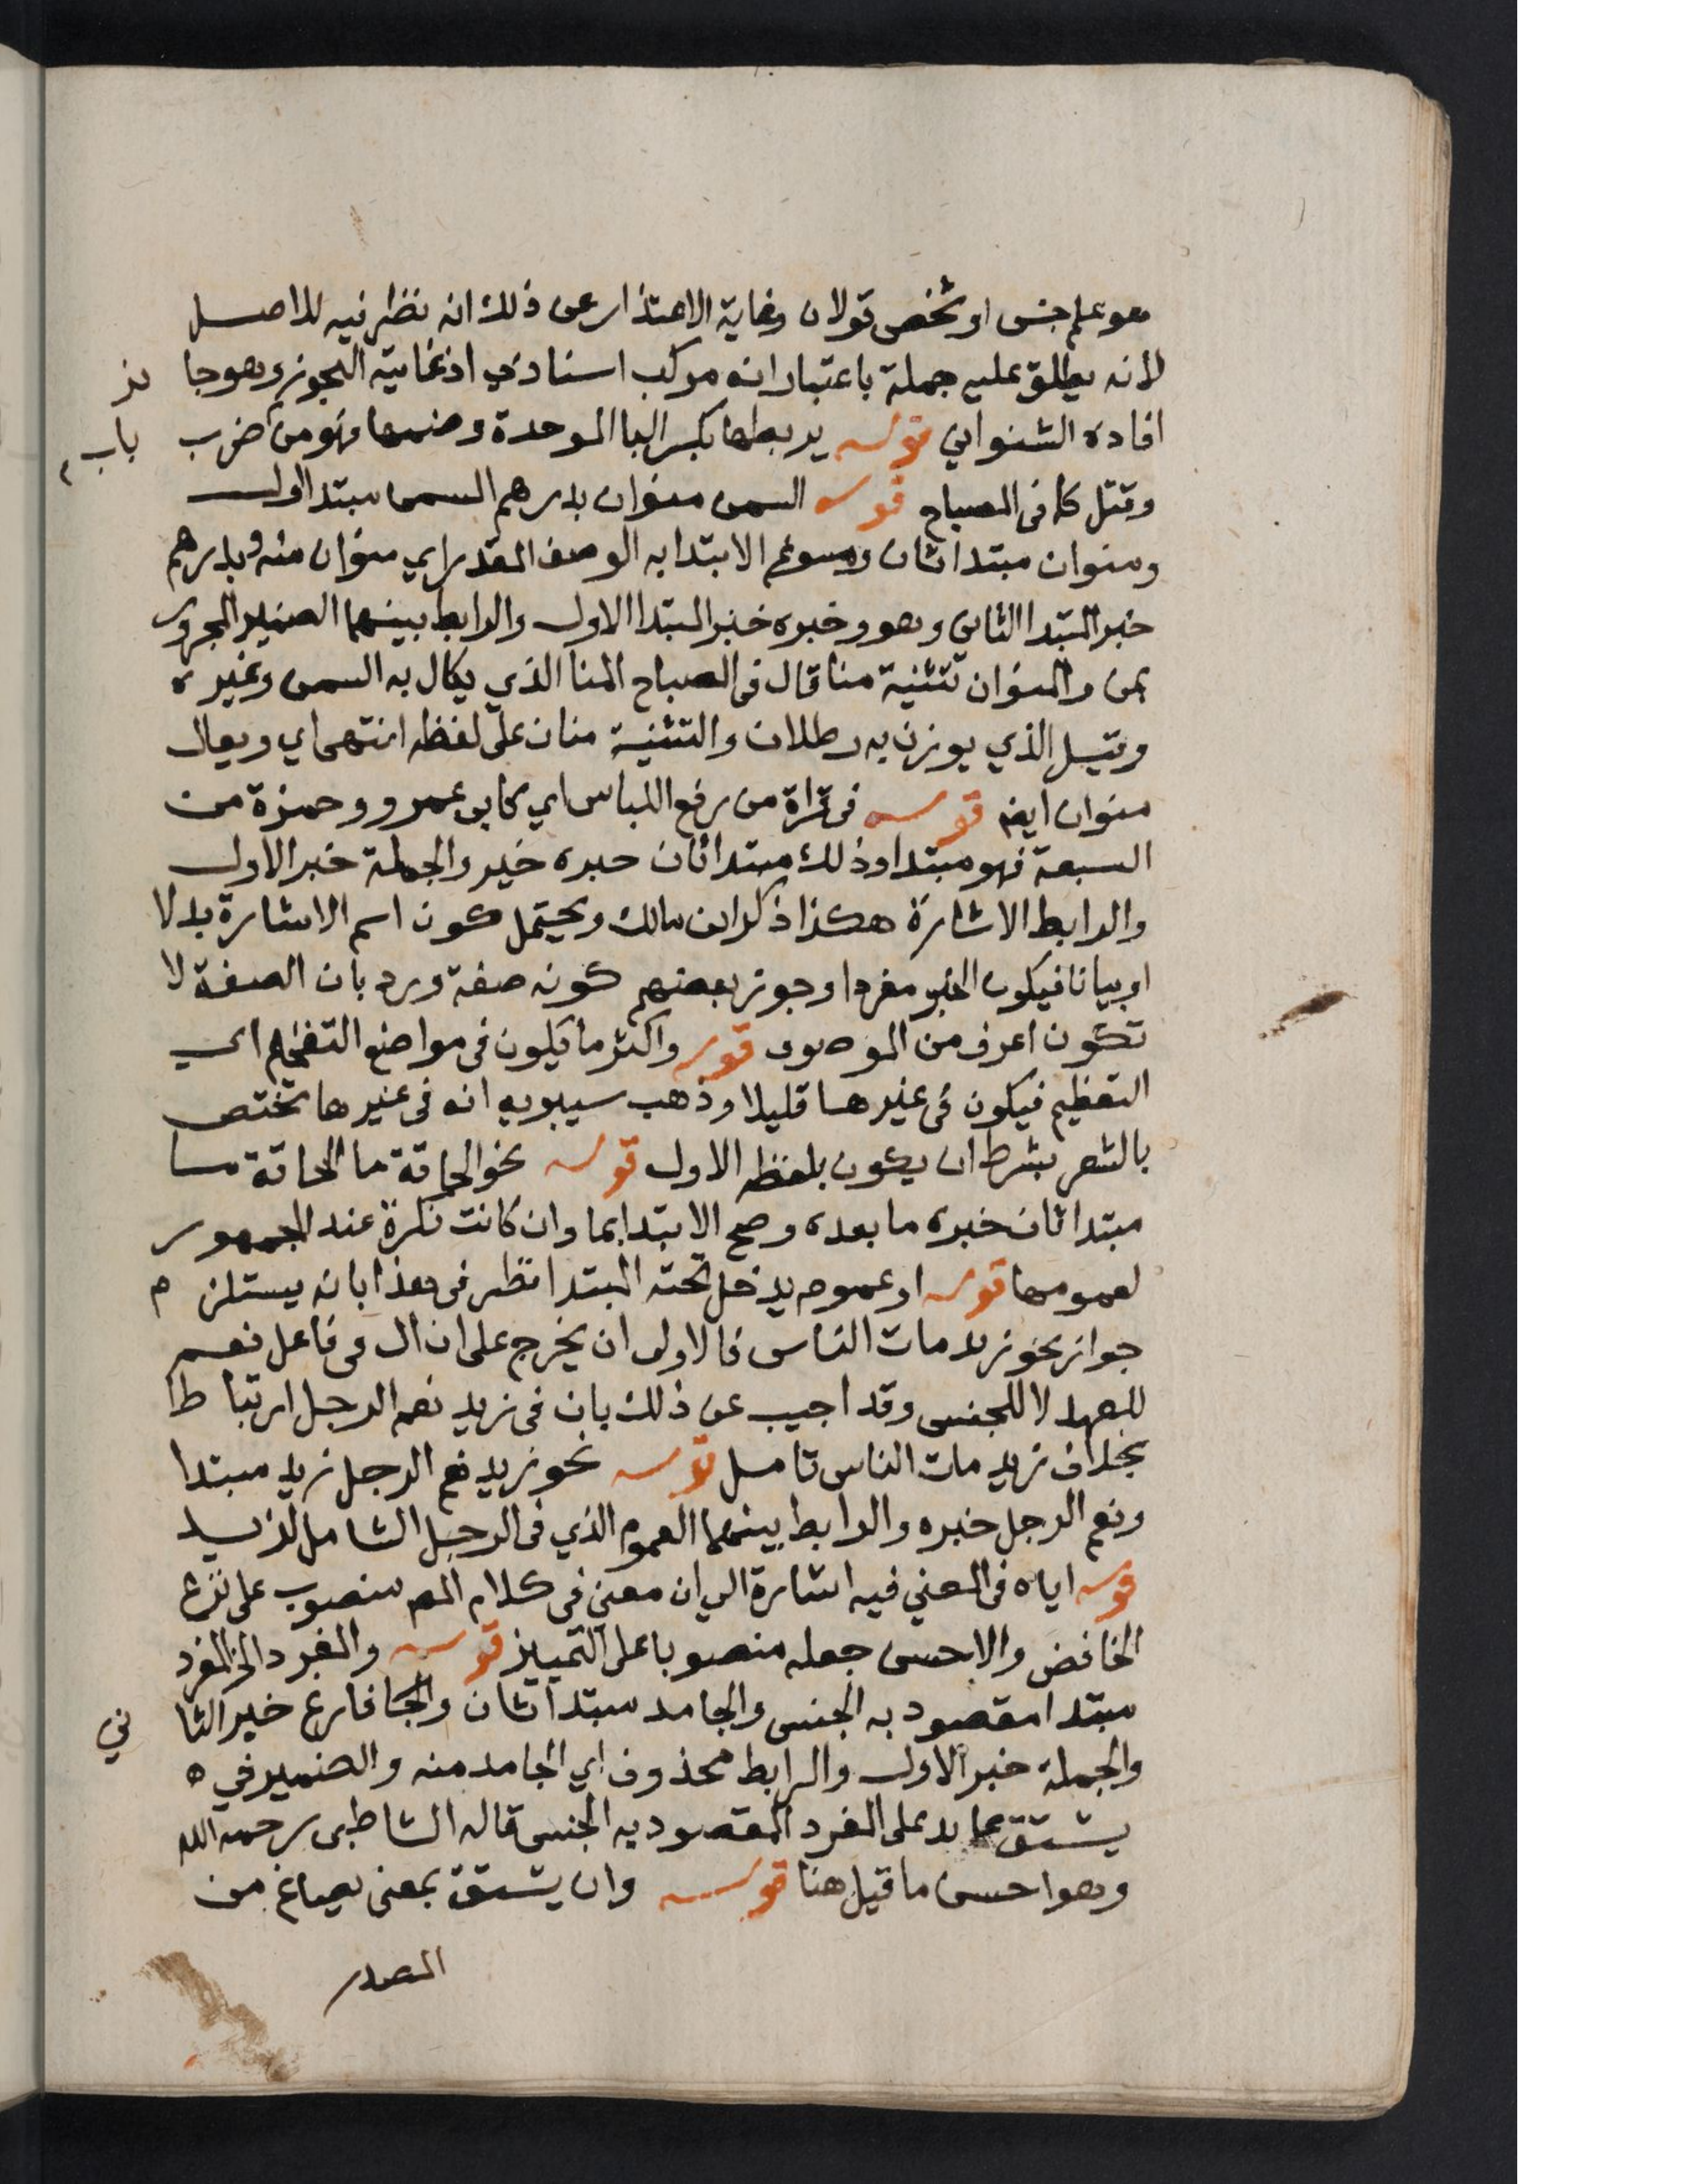 هو علم جنس او شخص قولان وغاية الاعتذار عن ذلك انه نظر فيه للاصل
لانه يطلق عليه جملة باعتبار انه مركب اسنادي اذ غايته التجوز وهو جا ئز
افاده الشنواني قوله يربطها بكسر البا الموحدة وضمها فهو من باب ضرب
وقتل كما فى المصباح قوله السمن منوان بدرهم السمن مبتدا اول
ومنوان مبتدا ثان ومسوغ الابتدا به الوصف المقدر اي منوان منه وبدرهم
خبر المبتدا الثانى وهو وخبره خبر المبتدا الاول والرابط بينهما الضمير المجرور
بمن والمنوان تثنية منا قال فى المصباح المنا الذي يكال به السمن وغيره
وقيل الذي يوزن به رطلان والتثنية منان على لفظه انتهى اي ويقال
منوان ايضا قوله فى قراة من رفع اللباس اي كابى عمرو وحمزة من
السبعة فهو مبتدا وذلك مبتدا ثان خبره خير والجملة خبر الاول
والرابط الاشارة هكذا ذكر ابن مالك ويحتمل كون اسم الاشارة بدلا
او بيانا فيكون الخبر مفردا وجوز بعضهم كونه صفة ورد بان الصفة لا
تكون اعرف من الموصوف قوله واكثر ما يكون فى مواضع التفخيم اي
التعظيم فيكون فى غيرها قليلا وذهب سيبويه انه فى غيرها تختص
بالشعر بشرط ان يكون بلفظه الاول قوله نحو الحاقة ما الحاقة ما
مبتدا ثان خبره ما بعده وصح الابتدا بما وان كانت نكرة عند الجمهور
لعمومها قوله او عموم يدخل تحته المبتدا نظر فى هذا بانه يستلزم
جواز نحو زيد مات الناس فالاولى ان يخرج على ان ال فى فاعل نعم
للعهد لا للجنس وقد اجيب عن ذلك بان فى زيد نعم الرجل ارتباطا
بخلاف زيد مات الناس تامل قوله نحو زيد نعم الرجل زيد مبتدا
ونعم الرجل خبره والرابط بينهما العموم الذي فى الرجل الشامل لزيد
قوله اياه فى المعني فيه اشارة الى ان معني فى كلام المص منصوب على نزع
الخافض والاحسن جعله منصوبا على التمييز قوله والمفرد الخ المفرد
مبتدا مقصود به الجنس والجامد مبتدا ثان والجا فارغ خبر الثا ني
والجملة خبر الاول والرابط محذوف اي الجامد منه والضمير في ه
يشتق عايد على المفرد المقصود به الجنس قاله الشاطبى رحمه الله
وهو احسن ما قيل هنا قوله وان يشتق بمعنى يصاغ من
المصدر